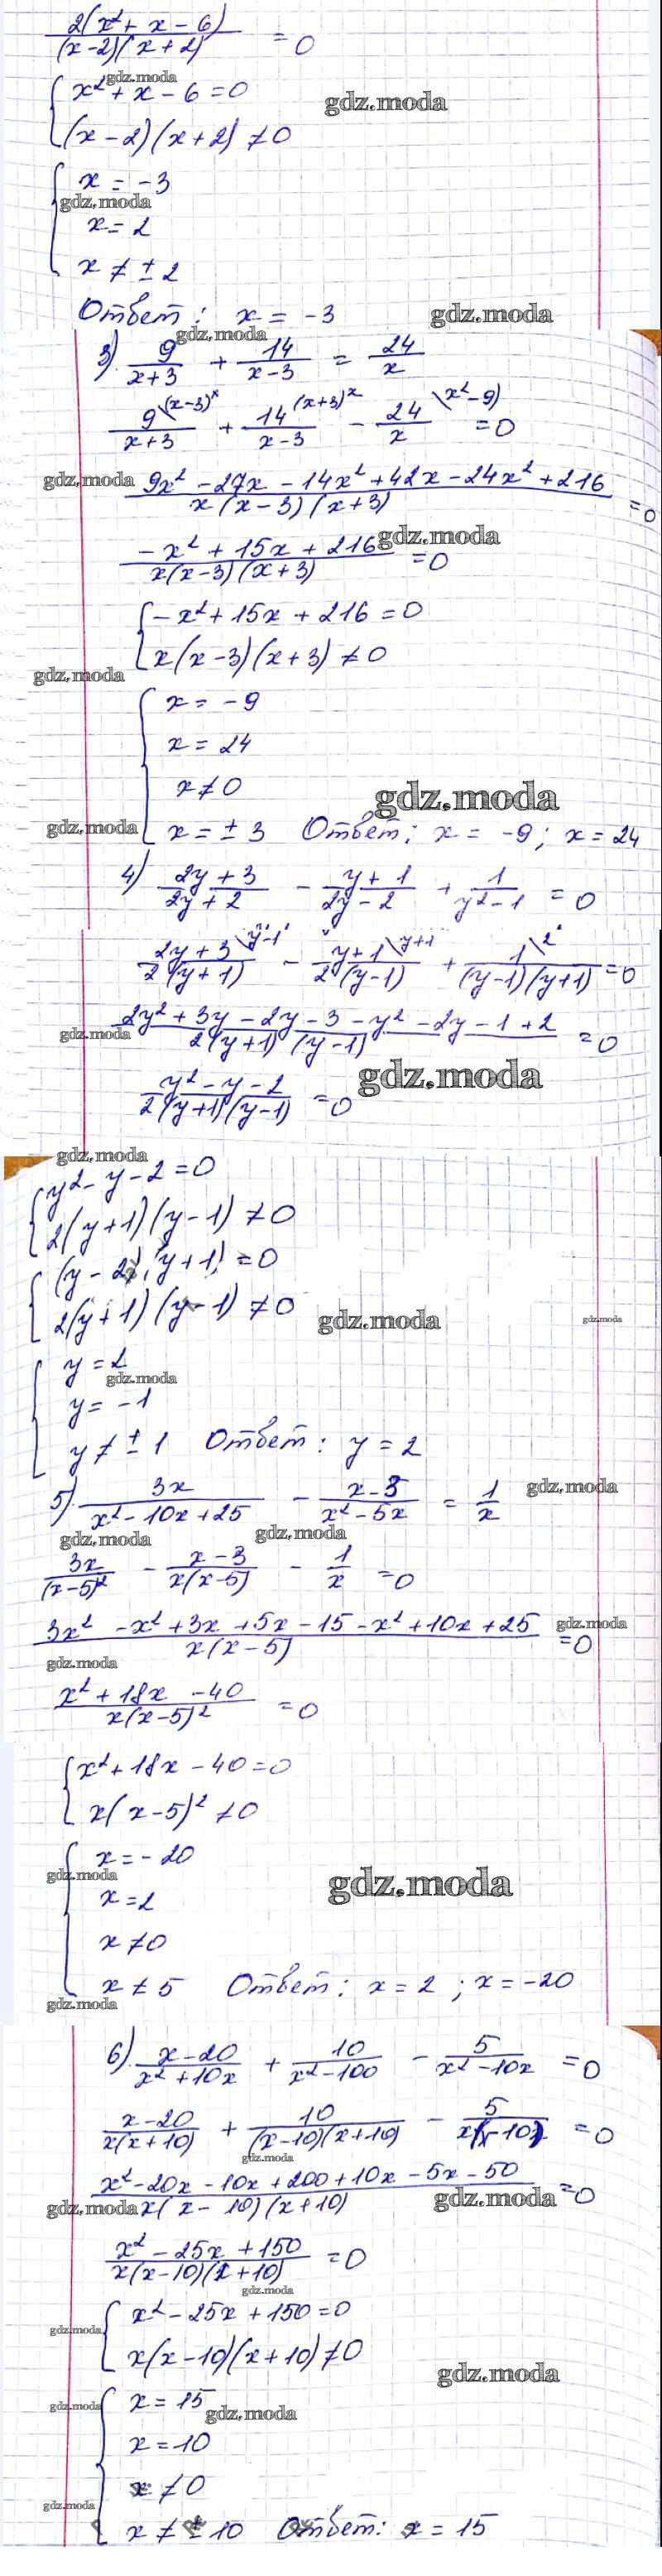 2(x² + x - 6) / (x-2)(x+2) = 0
gdz.moda
{ x² + x - 6 = 0
gdz.moda
(x-2)(x+2) ≠ 0
{ x = -3
gdz.moda
x = 2
x ≠ ± 2
Ответ: x = -3
gdz.moda
gdz.moda
3) 9/(x+3) + 14/(x-3) = 24/x
9\(x-3)x / (x+3) + 14 (x+3)x / (x-3) - 24 \(x²-9) / x = 0
gdz.moda
9x² - 27x - 14x² + 42x - 24x² + 216 / x(x-3)(x+3) = 0
gdz.moda
-x² + 15x + 216 / x(x-3)(x+3) = 0
{ -x² + 15x + 216 = 0
x(x-3)(x+3) ≠ 0
gdz.moda
{ x = -9
x = 24
x ≠ 0
gdz.moda
gdz.moda
x = ± 3 Ответ: x = -9; x = 24
4) (2y+3)/(2y+2) - (y+1)/(2y-2) + 1/(y²-1) = 0
2y+3\y-1 / 2(y+1) - y+1\y+1 / 2(y-1) + 1\2 / (y-1)(y+1) = 0
2y² + 3y - 2y - 3 - y² - 2y - 1 + 2 / 2(y+1)(y-1) = 0
gdz.moda
gdz.moda
y² - y - 2 / 2(y+1)(y-1) = 0
gdz.moda
{ y² - y - 2 = 0
2(y+1)(y-1) ≠ 0
{ (y-2)(y+1) = 0
2(y+1)(y-1) ≠ 0
gdz.moda
gdz.moda
{ y = 2
gdz.moda
y = -1
y ≠ ± 1 Ответ: y = 2
5) 3x/(x²-10x+25) - (x-3)/(x²-5x) = 1/x
gdz.moda
gdz.moda
gdz.moda
3x/(x-5)² - (x-3)/x(x-5) - 1/x = 0
3x² - x² + 3x + 5x - 15 - x² + 10x + 25 / x(x-5) = 0
gdz.moda
gdz.moda
x² + 18x - 40 / x(x-5)² = 0
{ x² + 18x - 40 = 0
x(x-5)² ≠ 0
{ x = -20
gdz.moda
gdz.moda
x = 2
x ≠ 0
x ≠ 5 Ответ: x = 2; x = -20
gdz.moda
6) (x-20)/(x²+10x) + 10/(x²-100) - 5/(x²-10x) = 0
(x-20)/x(x+10) + 10/(x-10)(x+10) - 5/x(x-10) = 0
gdz.moda
x² - 20x - 10x + 200 + 10x - 5x - 50 / x(x-10)(x+10) = 0
gdz.moda
gdz.moda
x² - 25x + 150 / x(x-10)(x+10) = 0
gdz.moda
{ x² - 25x + 150 = 0
gdz.moda
x(x-10)(x+10) ≠ 0
gdz.moda
{ x = 15
gdz.moda
gdz.moda
x = 10
x ≠ 0
gdz.moda
x ≠ ± 10 Ответ: x = 15